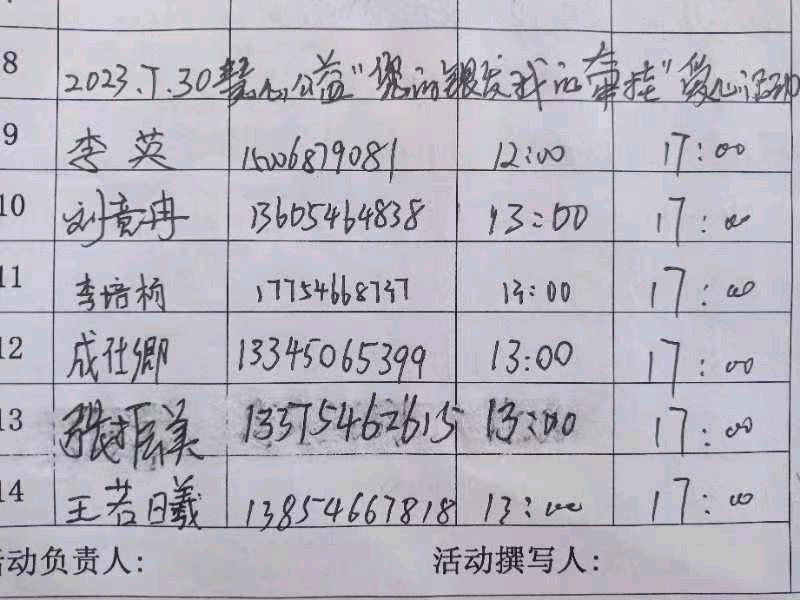 8 2023.7.30慧心公益"您的银发我的牵挂"爱心活动
9 李英 15006879081 12:00 17:00
10 刘竟冉 13605464838 13:00 17:00
11 李培杨 17754668737 13:00 17:00
12 成仕卿 13345065399 13:00 17:00
13 张振美 13375462615 13:00 17:00
14 王若曦 13854667818 13:00 17:00
活动负责人: 活动撰写人: